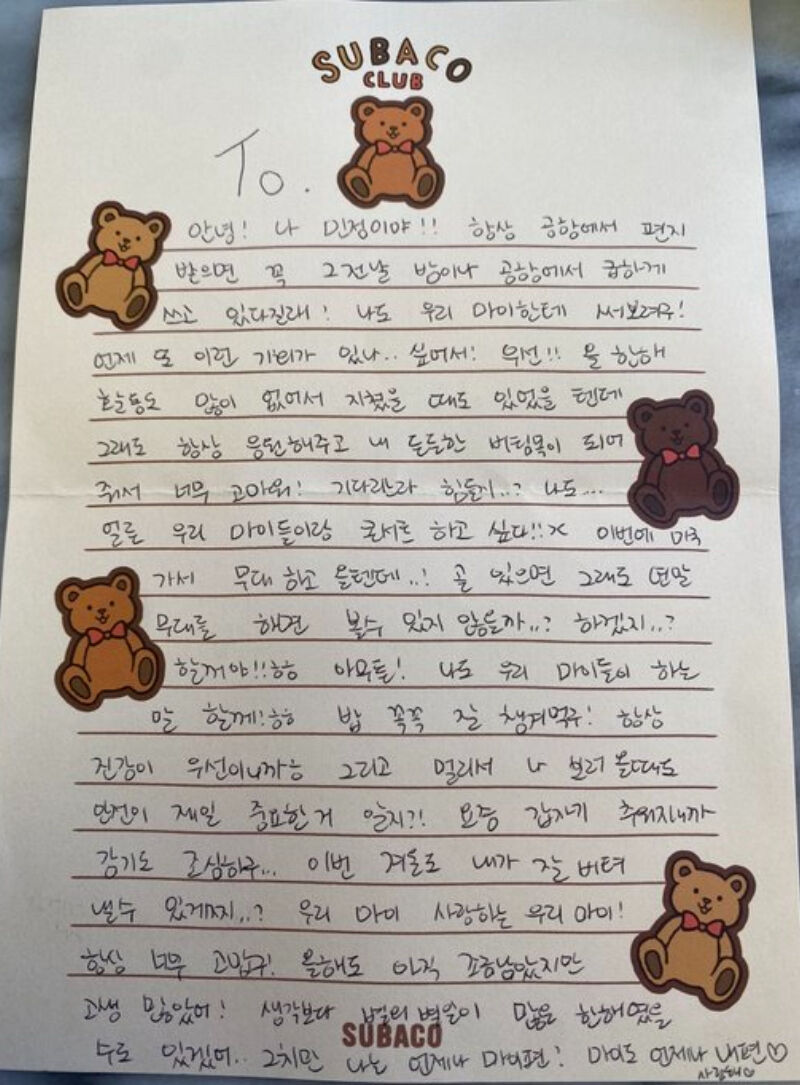 SUBACO
CLUB
To.
안녕! 나 민정이야!! 항상 공항에서 편지
받으면 꼭 그전날 밤이나 공항에서 급하게
쓰고 있다길래! 나도 우리 마이한테 써보려구!
언제 또 이런 기회가 있나.. 싶어서! 우선!! 올 한해
활동도 많이 없어서 지쳤을 때도 있었을 텐데
그래도 항상 응원해주고 내 든든한 버팀목이 되어
줘서 너무 고마워! 기다리느라 힘들지..? 나도...
얼른 우리 마이들이랑 콘서트 하고 싶다!! 이번에 미국
가서 무대 하고 올텐데..! 곧 있으면 그래도 연말
무대를 해면 볼수 있지 않을까..? 하겠지..?
할꺼야!!ㅎㅎ 아무튼! 나도 우리 마이들이 하는
말 할께!ㅎㅎ 밥 꼭꼭 잘 챙겨먹구! 항상
건강이 우선이니까능 그리고 멀리서 나 보러 올때도
안전이 제일 중요한거 알지?! 요즘 갑자기 추워지니까
감기도 조심하구... 이번 겨울도 내가 잘 버텨
낼수 있겠찌..? 우리 마이 사랑하는 우리 마이!
항상 너무 고맙구! 올해도 아직 조금남았지만
고생 많았어! 생각보다 별의 별일이 많은 한해였을
수도 있겠어.. 그치만 나는 언제나 마이편! 마이도 언제나 내편♡
사랑해♡
SUBACO